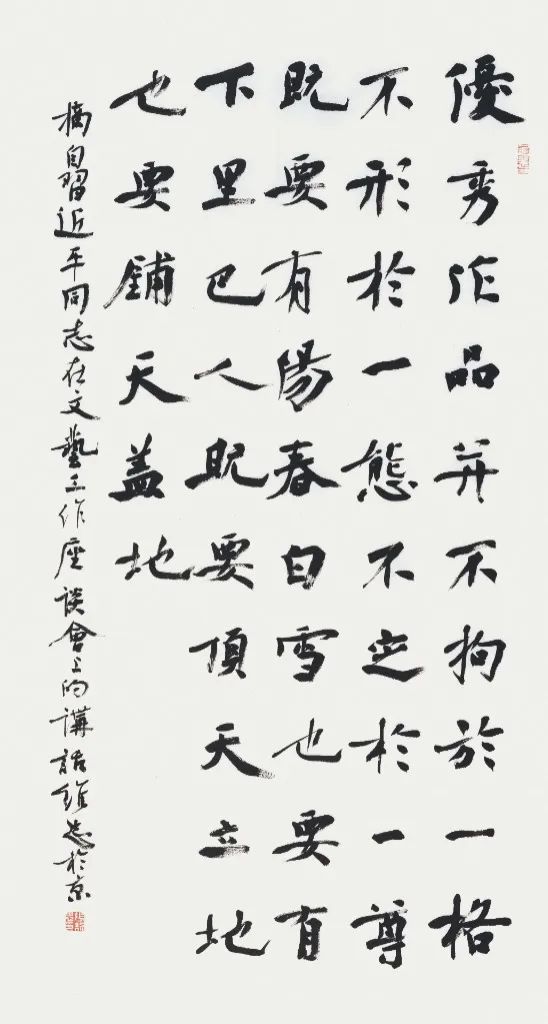 優秀作品并不拘於一格
不形於一態不定於一尊
既要有陽春白雪也要有
下里巴人既要頂天立地
也要鋪天盖地
摘自習近平同志在文藝工作座談會上的講話維忠於京